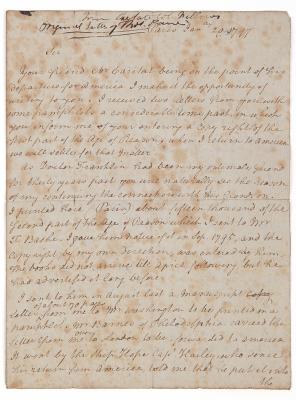 from
Original Letter of Thos Paine
Paris Jan 20 1797
Sir
Your friend Mr Caritat being on the point of his
departure for America I make it the opportunity of
writing to you. I received two letters from you with
some pamphlets a considerable time past, in which
you inform me of your entering a copy right of the
first part of the Age of Reason. when I return to America
we will settle for that matter.
As Doctor Franklin had been my intimate friend
for thirty years past you will naturally see the reason
of my continuing the connection with his Grandson.
I printed here (Paris) about fifteen thousand of the
second part of the Age of Reason which I sent to Mr
F. Bache. I gave him notice of it in Sep. 1795, and the
copy right by my own direction, was entered by him.
The books did not arrive till April following but he
had advertised it long before.
I sent to him in August last a manuscript
letter of 70 pages from me to Mr Washington to be printed in a
pamphlet. Mr Barnes of Philadelphia carried the
letter from me over to London to be forwarded to America
It went by the ship Hope Capt Harley, who since
his return from America told me that he put it into
the